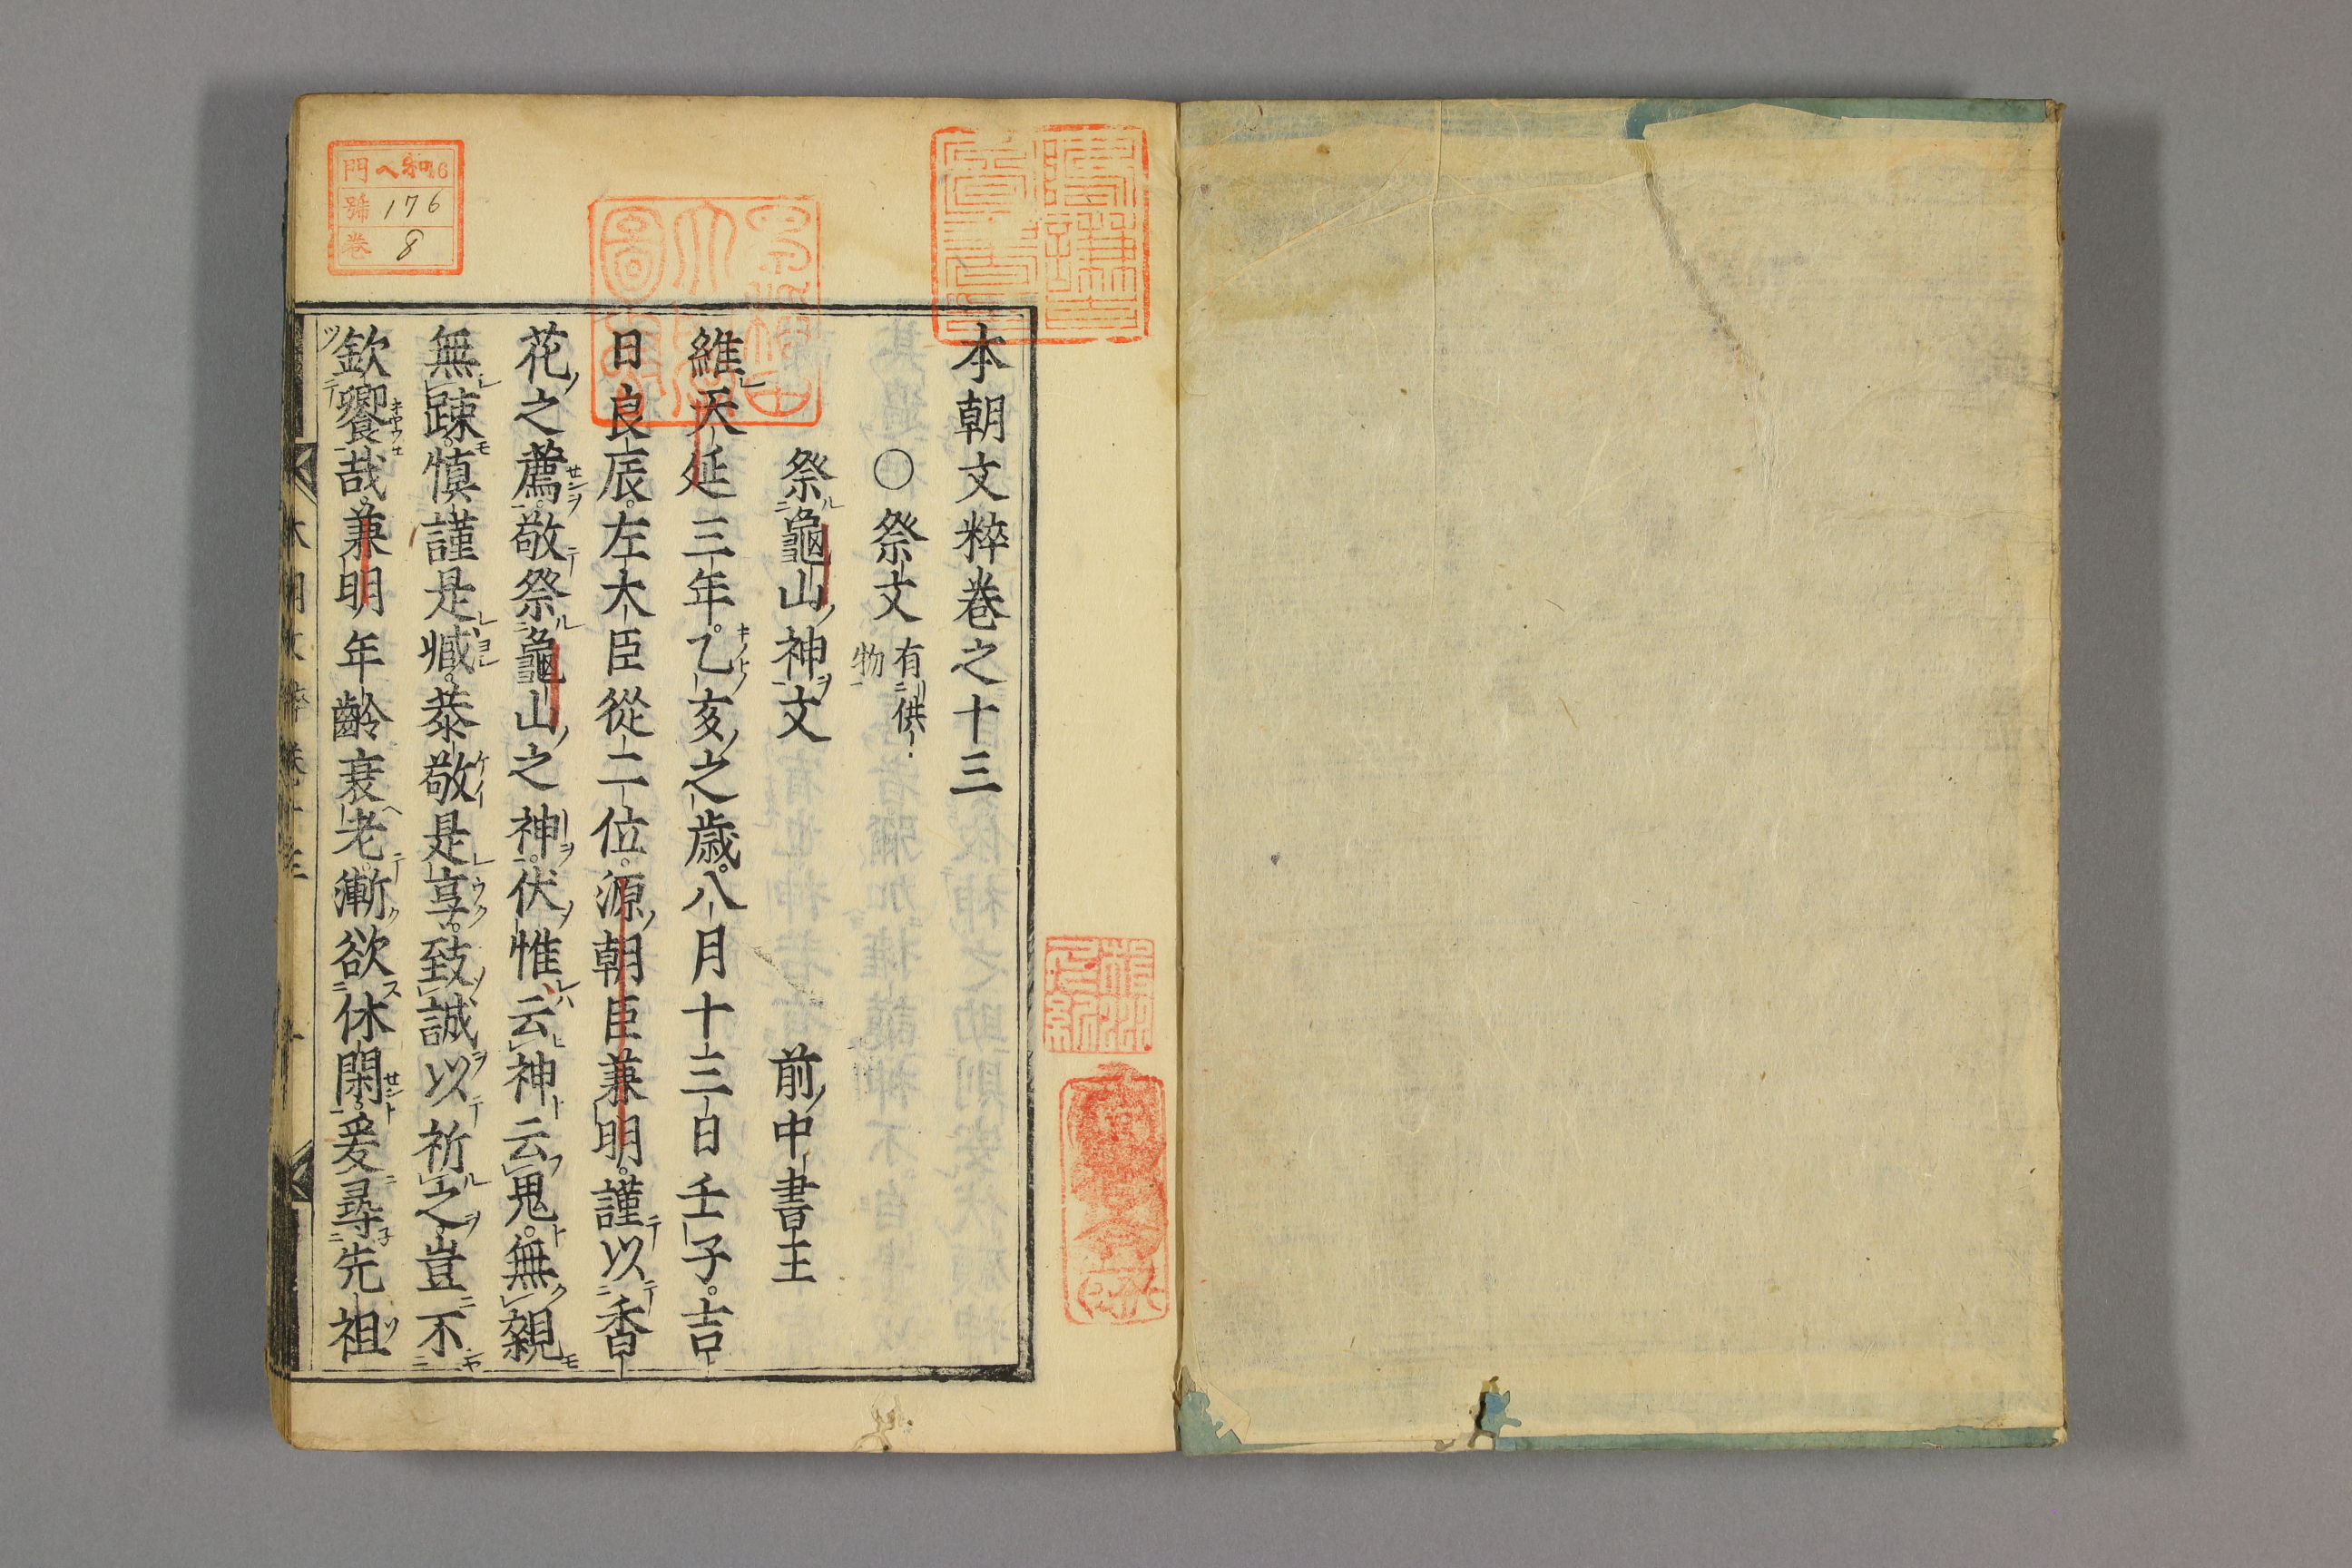 本朝文粹巻之十三
〇祭文 有供物
祭龜山神文 前中書王
維天延三年乙亥之歳八月十三日壬子吉
日良辰左大臣從二位源朝臣兼明謹以香
花之薦敬祭龜山之神伏惟云神云鬼無親
無踈慎謹是臧恭敬是享致誠以祈之豈不
欽饗哉兼明年齡衰老漸欲休閑爰尋先祖
門 和
號 176
卷 8